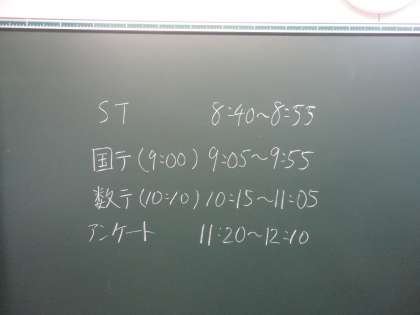 ST 8:40~8:55
国テ(9:00) 9:05~9:55
数テ(10:10) 10:15~11:05
アンケート 11:20~12:10